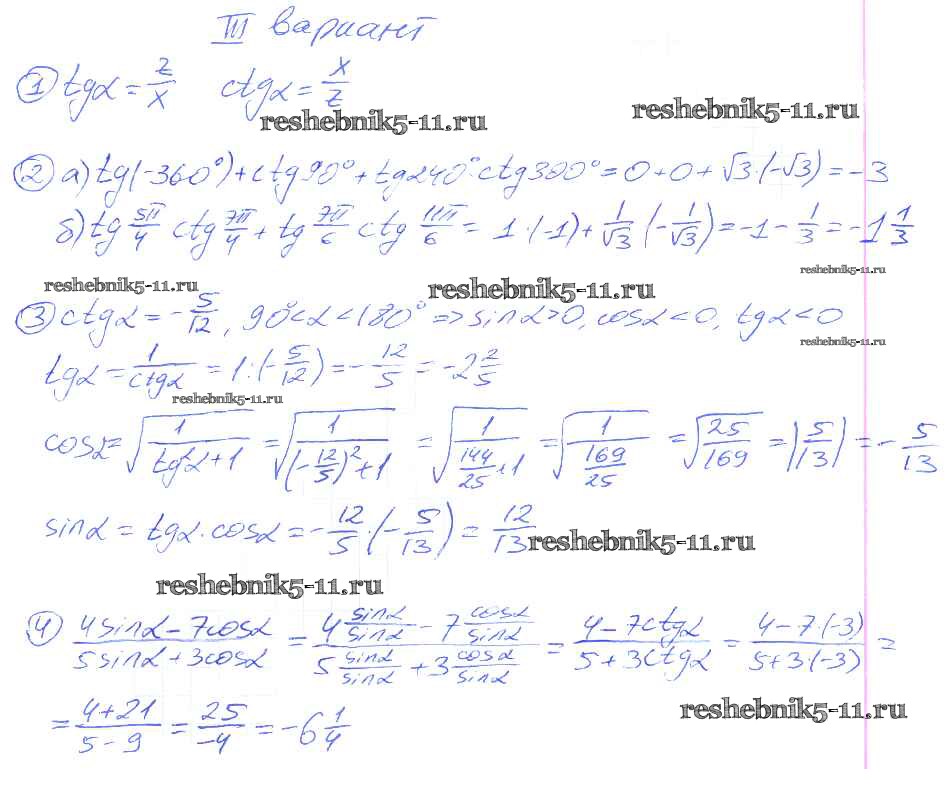 III вариант
① tgα = z/x   ctgα = x/z
reshebnik5-11.ru
reshebnik5-11.ru
② а) tg(-360°) + ctg90° + tg240°·ctg300° = 0+0+√3·(-√3) = -3
б) tg 5π/4 ctg 7π/4 + tg 7π/6 ctg 11π/6 = 1·(-1) + 1/√3 (-1/√3) = -1 - 1/3 = -1 1/3
reshebnik5-11.ru
reshebnik5-11.ru
reshebnik5-11.ru
③ ctgα = -5/12, 90°<α<180° => sinα>0, cosα<0, tgα<0
reshebnik5-11.ru
tgα = 1/ctgα = 1:(-5/12) = -12/5 = -2 2/5
reshebnik5-11.ru
cosα = √(1/(tg²α+1)) = √(1/((-12/5)²+1)) = √(1/(144/25+1)) = √(1/(169/25)) = √(25/169) = |5/13| = -5/13
sinα = tgα·cosα = -12/5·(-5/13) = 12/13
reshebnik5-11.ru
reshebnik5-11.ru
④ (4sinα-7cosα)/(5sinα+3cosα) = (4 sinα/sinα - 7 cosα/sinα)/(5 sinα/sinα + 3 cosα/sinα) = (4-7ctgα)/(5+3ctgα) = (4-7·(-3))/(5+3·(-3)) =
= (4+21)/(5-9) = 25/-4 = -6 1/4
reshebnik5-11.ru